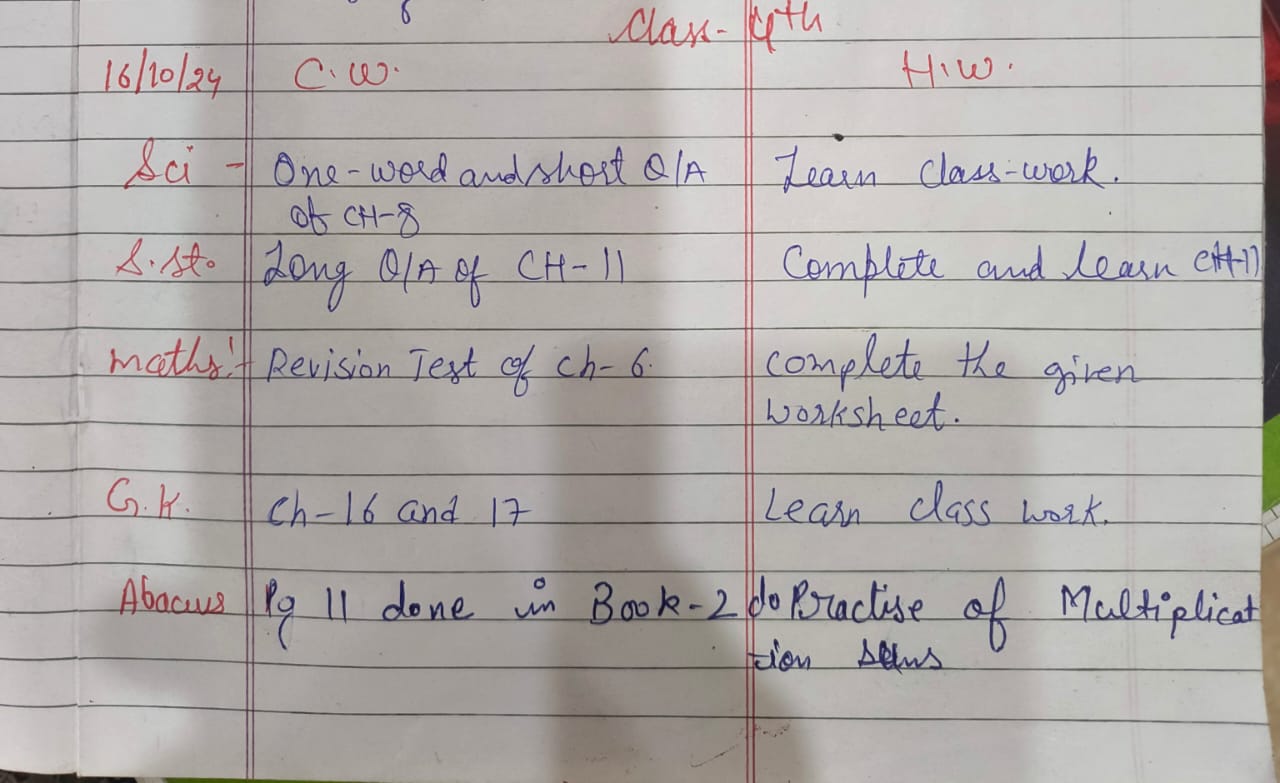 Class- 4th
16/10/24 C.W. H.W.
Sci - One-word and short Q/A Learn class-work.
of CH-8
S.St. Long Q/A of CH-11 Complete and learn CH-11
Maths:- Revision Test of ch-6. complete the given
worksheet.
G.K. Ch-16 and 17 Learn class work.
Abacus Pg 11 done in Book-2 do Practise of Multiplicat
tion